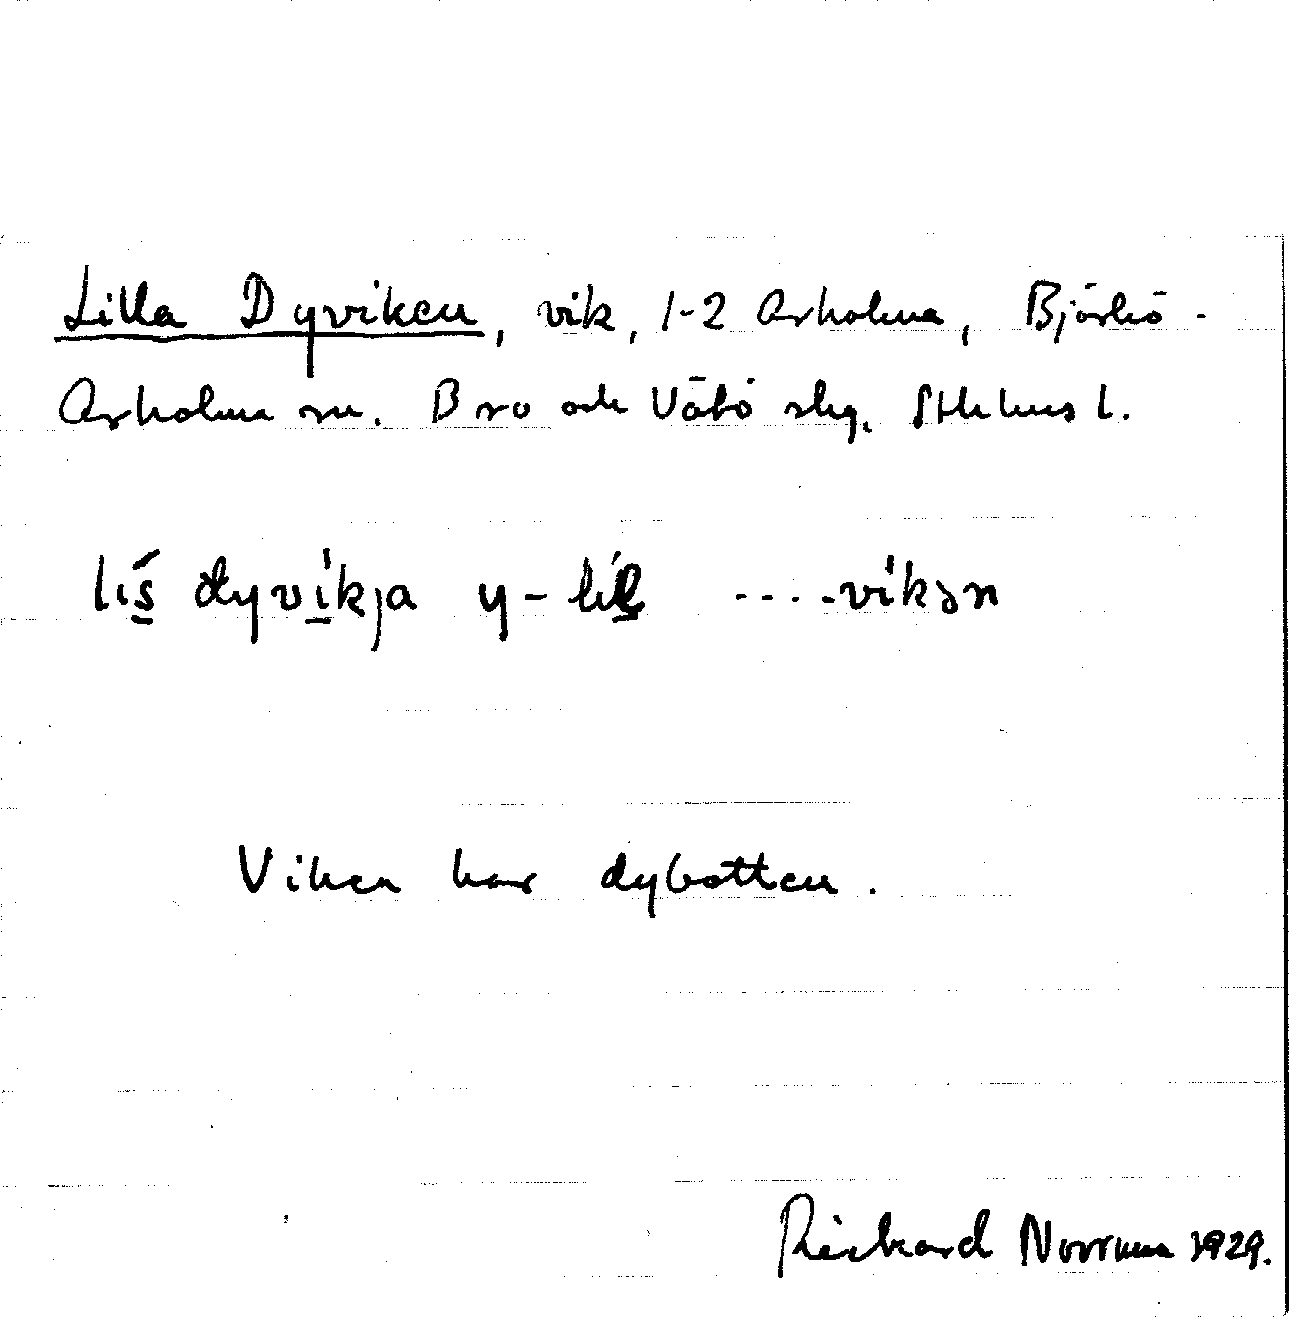 Lilla Dyviken, vik, 1-2 Arholma, Björkö-
Arholma sn. Bro och Vätö skg. Sthlms l.
dyvikja y- ....vikən
Viken har dybotten.
Rickard Norrman 1929.